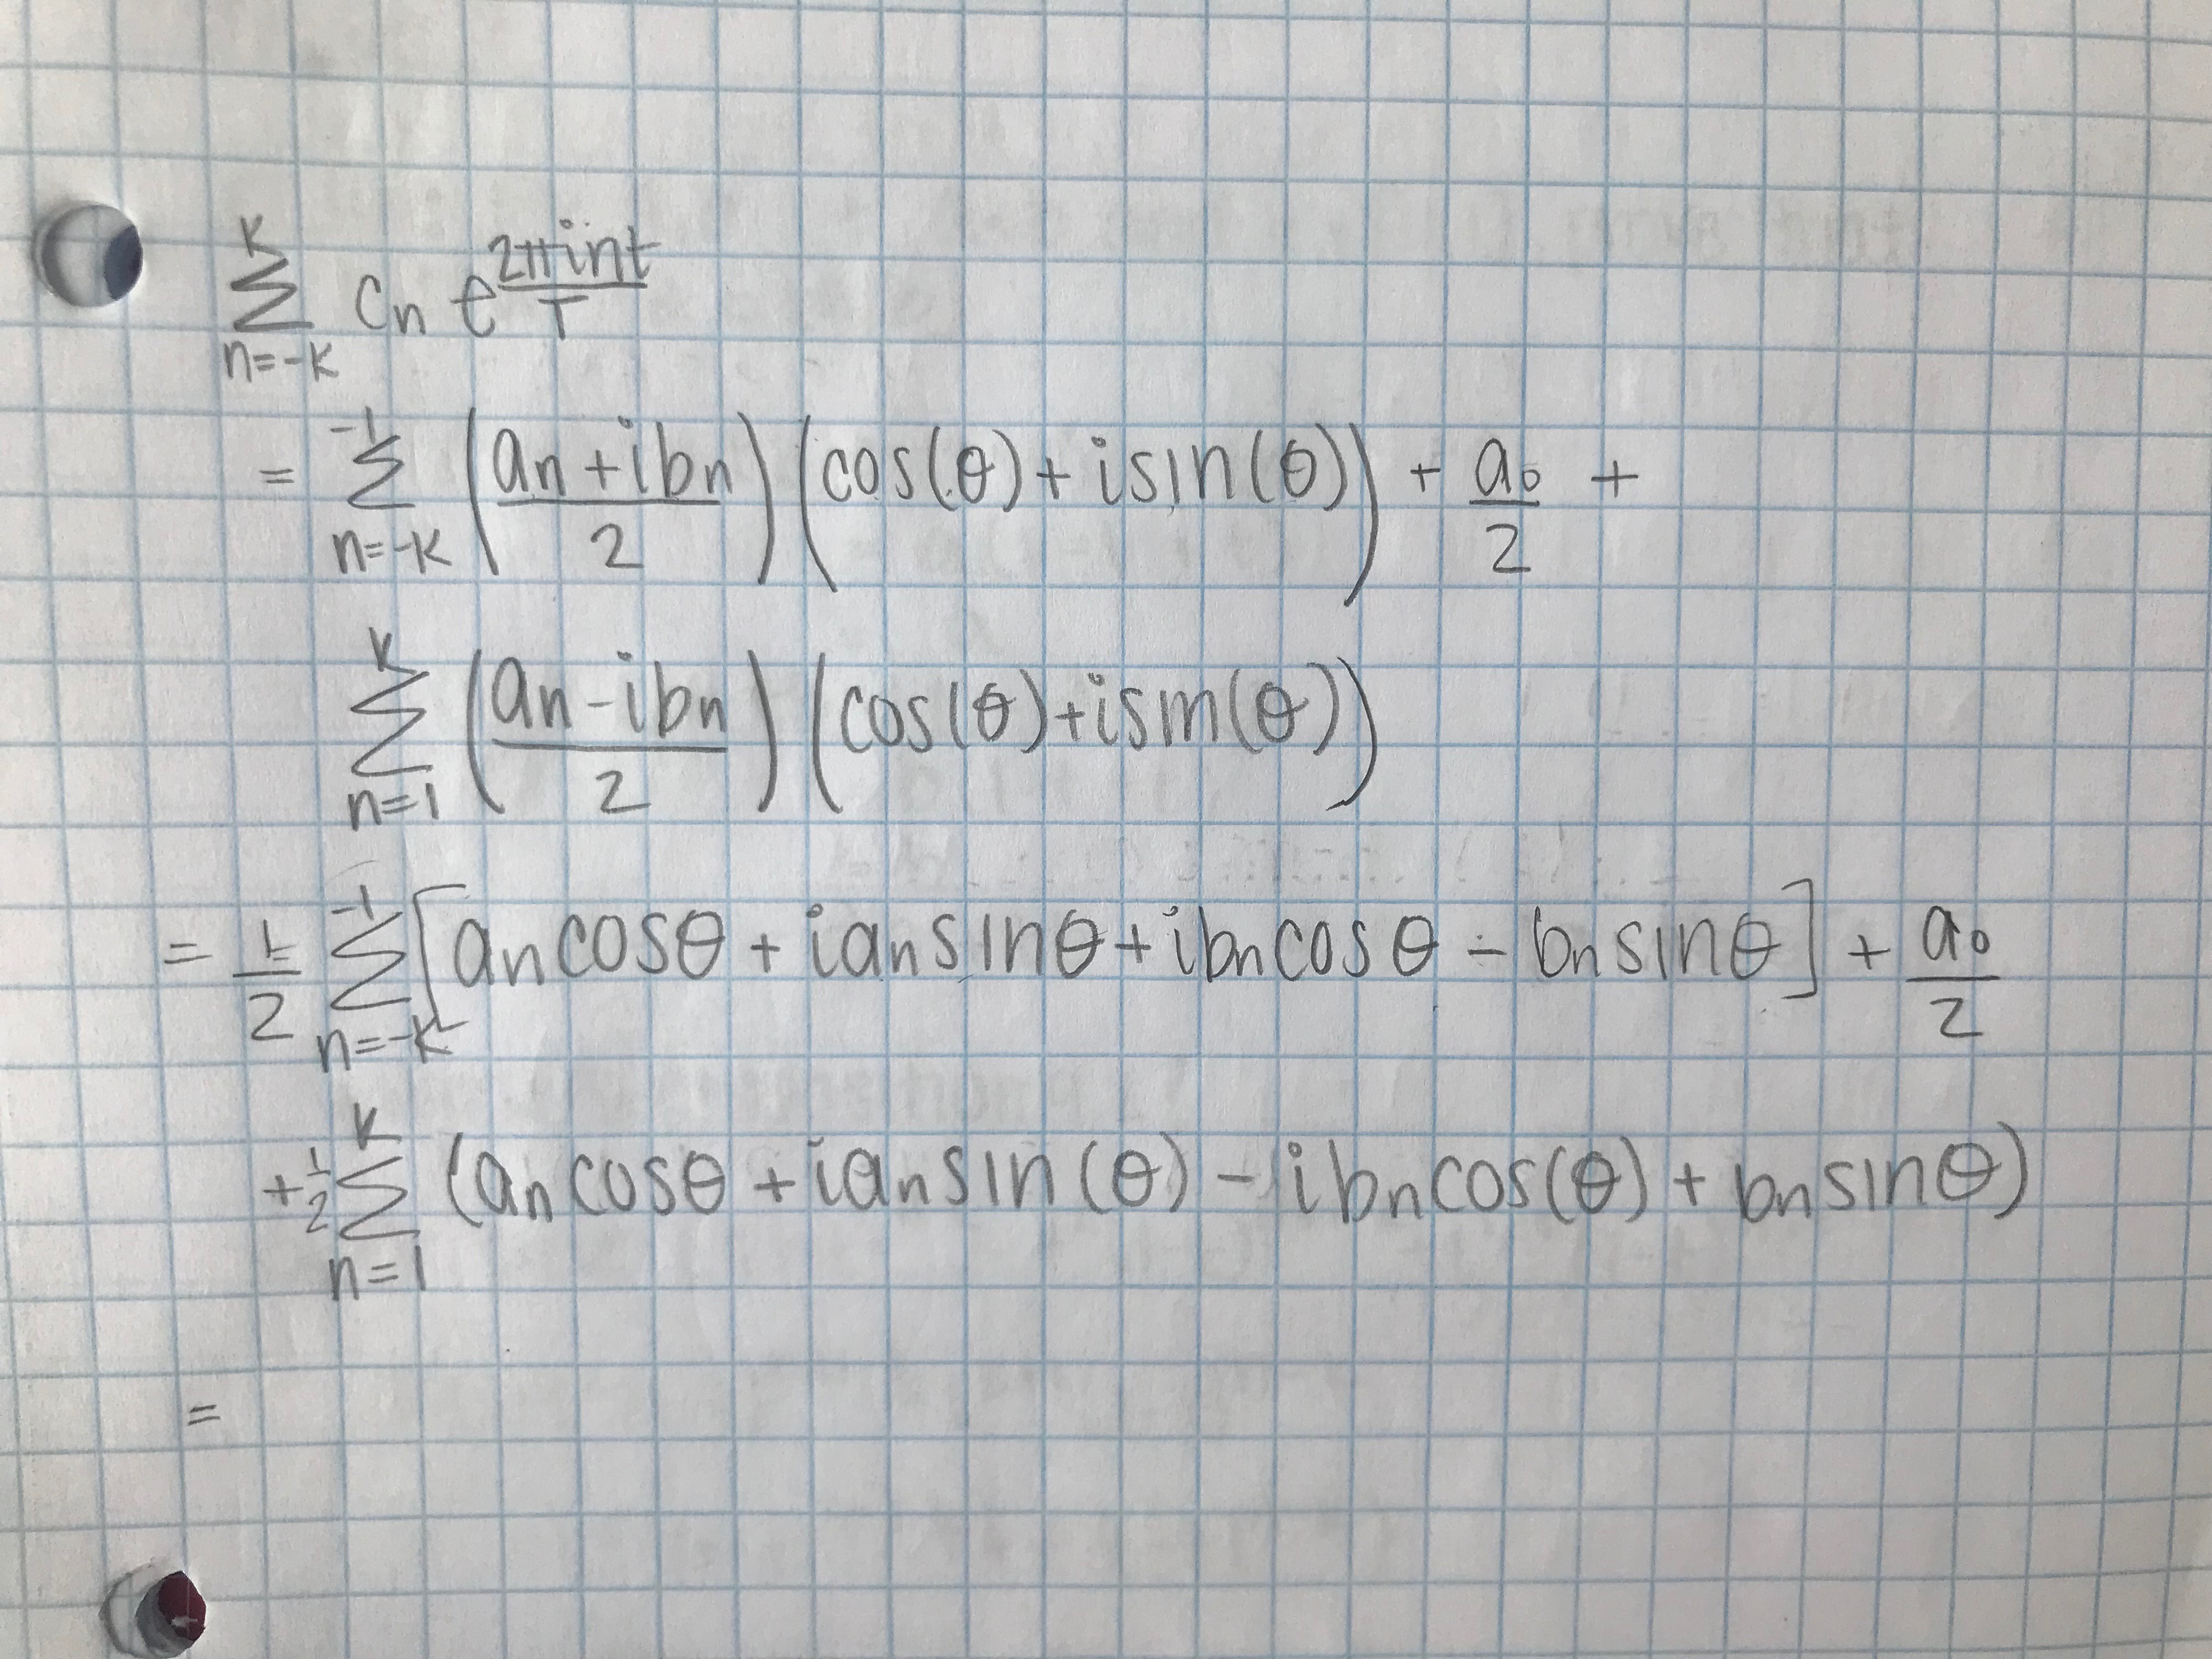 \sum_{n=-k}^{k} c_n e^{\frac{2\pi int}{T}}
= \sum_{n=-k}^{-1} \left( \frac{a_n + ib_n}{2} \right) (cos(θ) + i sin(θ)) + \frac{a_0}{2} +
\sum_{n=1}^{k} \left( \frac{a_n - ib_n}{2} \right) (cos(θ) + i sin(θ))
= \frac{1}{2} \sum_{n=-k}^{-1} [a_n cosθ + i a_n sinθ + i b_n cosθ - b_n sinθ] + \frac{a_0}{2}
+ \frac{1}{2} \sum_{n=1}^{k} (a_n cosθ + i a_n sin(θ) - i b_n cos(θ) + b_n sinθ)
=